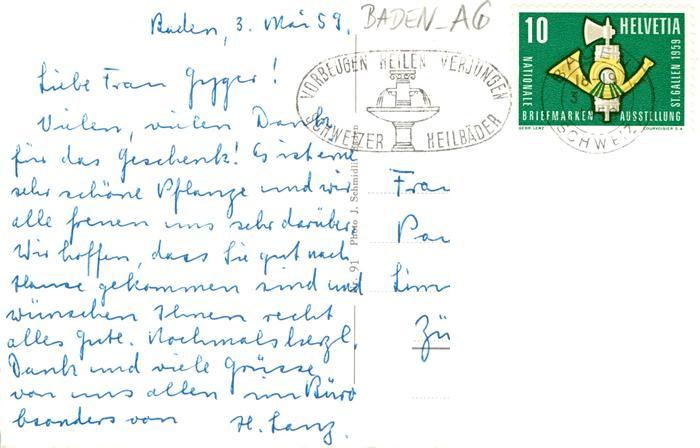 Baden, 3. Mai 59.
BADEN_AG
Liebe Frau Gyger!
Vielen, vielen Dank
für das Geschenk! Es ist eine
sehr schöne Pflanze und wir
alle freuen uns sehr darüber.
Wir hoffen, dass Sie gut nach
Hause gekommen sind und
wünschen Ihnen recht
alles Gute. Nochmals herzl.
Dank und viele Grüsse
von uns allen im Büro
besonders von H. Lanz.
VORBEUGEN HEILEN VERJÜNGEN
SCHWEIZER HEILBÄDER
10 HELVETIA
NATIONALE
BRIEFMARKEN AUSSTELLUNG
ST. GALLEN 1959
GEBR. LENZ COURVOISIER S.A.
SCHWEIZ
91 Photo J. Schmidli
Frau
Par
Lim
Zü